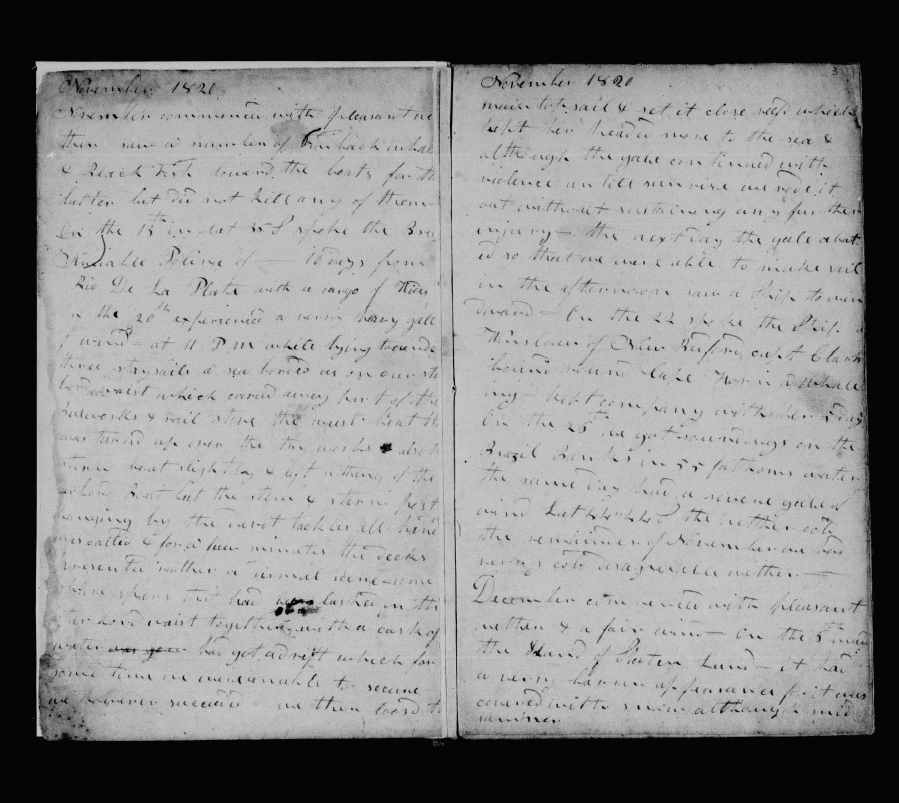 November 1820
November commenced with pleasant we
ther saw a number of Finback whal
& Black Fish lowerd the boats for the
latter but did not kill any of them
On the 15th in lat 35 S spoke the Brig
Amiable Polina of — 10 days from
Rio De La Plate with a cargo of Hides
n the 20th experienced a verry heavy gale
f wind — at 11 P m while lying tounder
three staysails a sea borded us on our sta
bord waist which caried away part of the
bulworks & rail stove the waist boat th
was turnd up over the try works & also th
stern boat slightly & left nthing of the
larbord Boat but the stem & stern post
hanging by the davit tackles all hand
were called & for a few minutes the decks
presented rather a dismal scene some
spare spars that had been lashed in the
star bord waist together with a cask of
water was gon had got adrift which for
some time we were unable to secure
we however succeded we then loosd th
November 1820
3
main top sail & set it close reefd which
kept her head more to the sea &
although the gale continued with
violence un till sunrise we rode it
out without sustaining any further
injury — the next day the gale abat
ed so that we were able to make sail
in the afternoon saw a Ship to win
dward — On the 22 spoke the Ship
of New Bedford capt Clark
bound round Cape Horn a whale
ing — kept company with her 2 days
On the 26th we got soundings on the
Brazil Banks in 55 fathoms water
the same day had a severe gale of
wind Lat 44" 44 S the wether cold
the remainder of November we had
verry cold disagreeable wether —
December commenced with pleasant
wether & a fair wind — On the 5th made
the Iland of Staten Land — it had
a verry barren appearance for it was
covered with snow although mid
summer